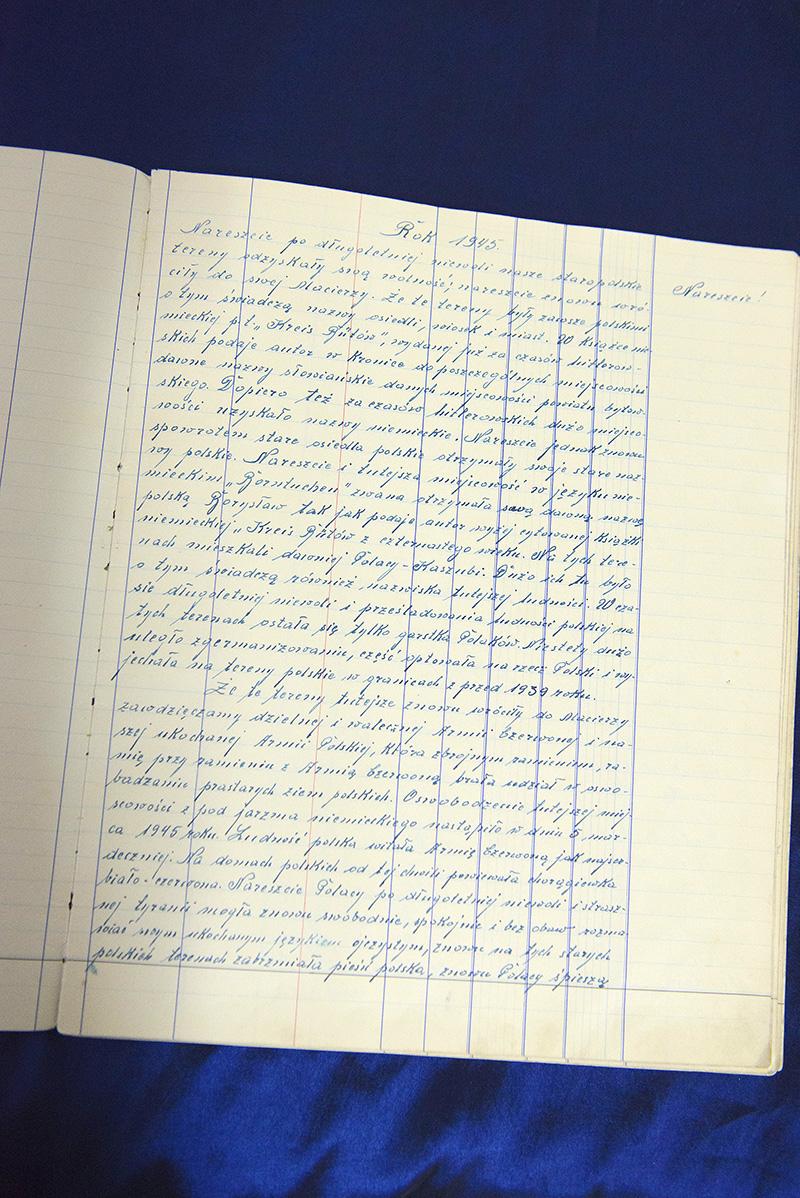 Rok 1945
Nareszcie po długoletniej niewoli nasze staropolskie
tereny odzyskały swą wolność, nareszcie znowu wró-
Nareszcie!
ciły do swej Macierzy. Że te tereny były zawsze polskimi
o tym świadczą nazwy osiedli, wiosek i miast. W książce nie-
mieckiej p.t. „Kreis Bütow", wydanej już za czasów hitlerow-
skich podaje autor w Kronice do poszczególnych miejscowości
dawne nazwy słowiańskie danych miejscowości powiatu bytow-
skiego. Dopiero też za czasów hitlerowskich dużo miejsco-
wości uzyskało nazwy niemieckie. Nareszcie jednak znowu
spowrotem stare osiedla polskie otrzymały swoje stare naz-
wy polskie. Nareszcie i tutejsza miejscowość w języku nie-
mieckim „Borntuchen" zwana otrzymała swą dawną nazwę
polską Borysław tak jak podaje autor wyżej cytowanej książki
niemieckiej „Kreis Bütow z czternastego wieku. Na tych tere-
nach mieszkali dawniej Polacy-Kaszubi. Dużo ich tu było
o tym świadczą również nazwiska tutejszej ludności. W cza-
sie długoletniej niewoli i prześladowania ludności polskiej na
tych terenach ostała się tylko garstka Polaków. Niestety dużo
uległo zgermanizowaniu, część optowała na rzecz Polski i wy-
jechała na tereny polskie w granicach z przed 1939 roku.
Że te tereny tutejsze znowu wróciły do Macierzy
zawdzięczamy dzielnej i walecznej Armii Czerwonej i na-
szej ukochanej Armii Polskiej, która zbrojnym ramieniem, ra-
mię przy ramieniu z Armią Czerwoną brała udział w oswo-
badzaniu prastarych ziem polskich. Oswobodzenie tutejszej miej-
scowości z pod jarzma niemieckiego nastąpiło w dniu 5 mar-
ca 1945 roku. Ludność polska witała Armię Czerwoną jak najser-
deczniej. Na domach polskich od tej chwili powiewała chorągiewka
biało-czerwona. Nareszcie Polacy po długoletniej niewoli i strasz-
nej tyranii mogła znowu swobodnie, spokojnie i bez obaw rozma-
wiać swym ukochanym językiem ojczystym, znowu na tych starych
polskich terenach zabrzmiała pieśń polska, znowu Polacy śpieszą